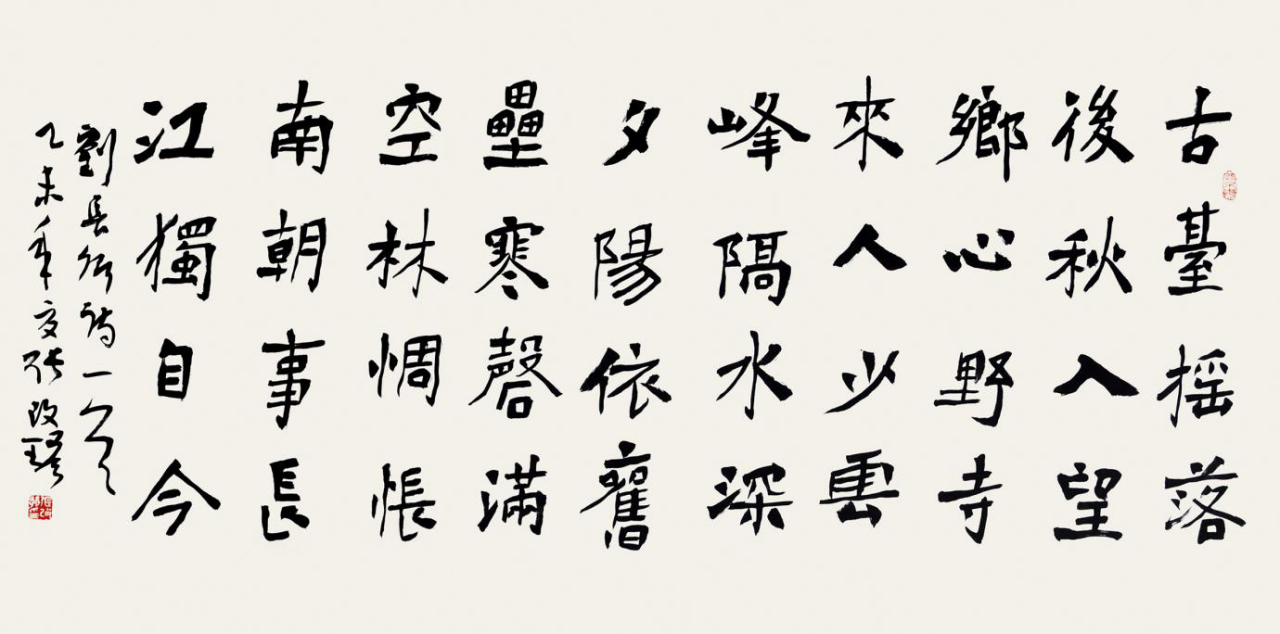 古臺摇落
後秋入望
鄉心野寺
來人少雲
峰隔水深
夕陽依舊
壘寒磬滿
空林惆悵
南朝事長
江獨自今
劉長卿詩一首
乙未年夏張改琴